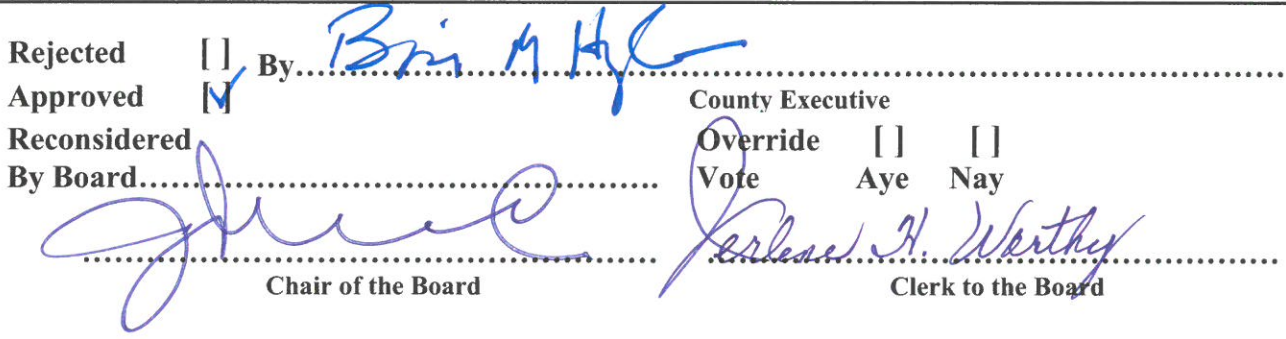 Rejected [ ] By..........
Approved [✓] County Executive
Reconsidered Override [ ] [ ]
By Board.......... Vote Aye Nay
Jerlene H. Worthy
Chair of the Board Clerk to the Board